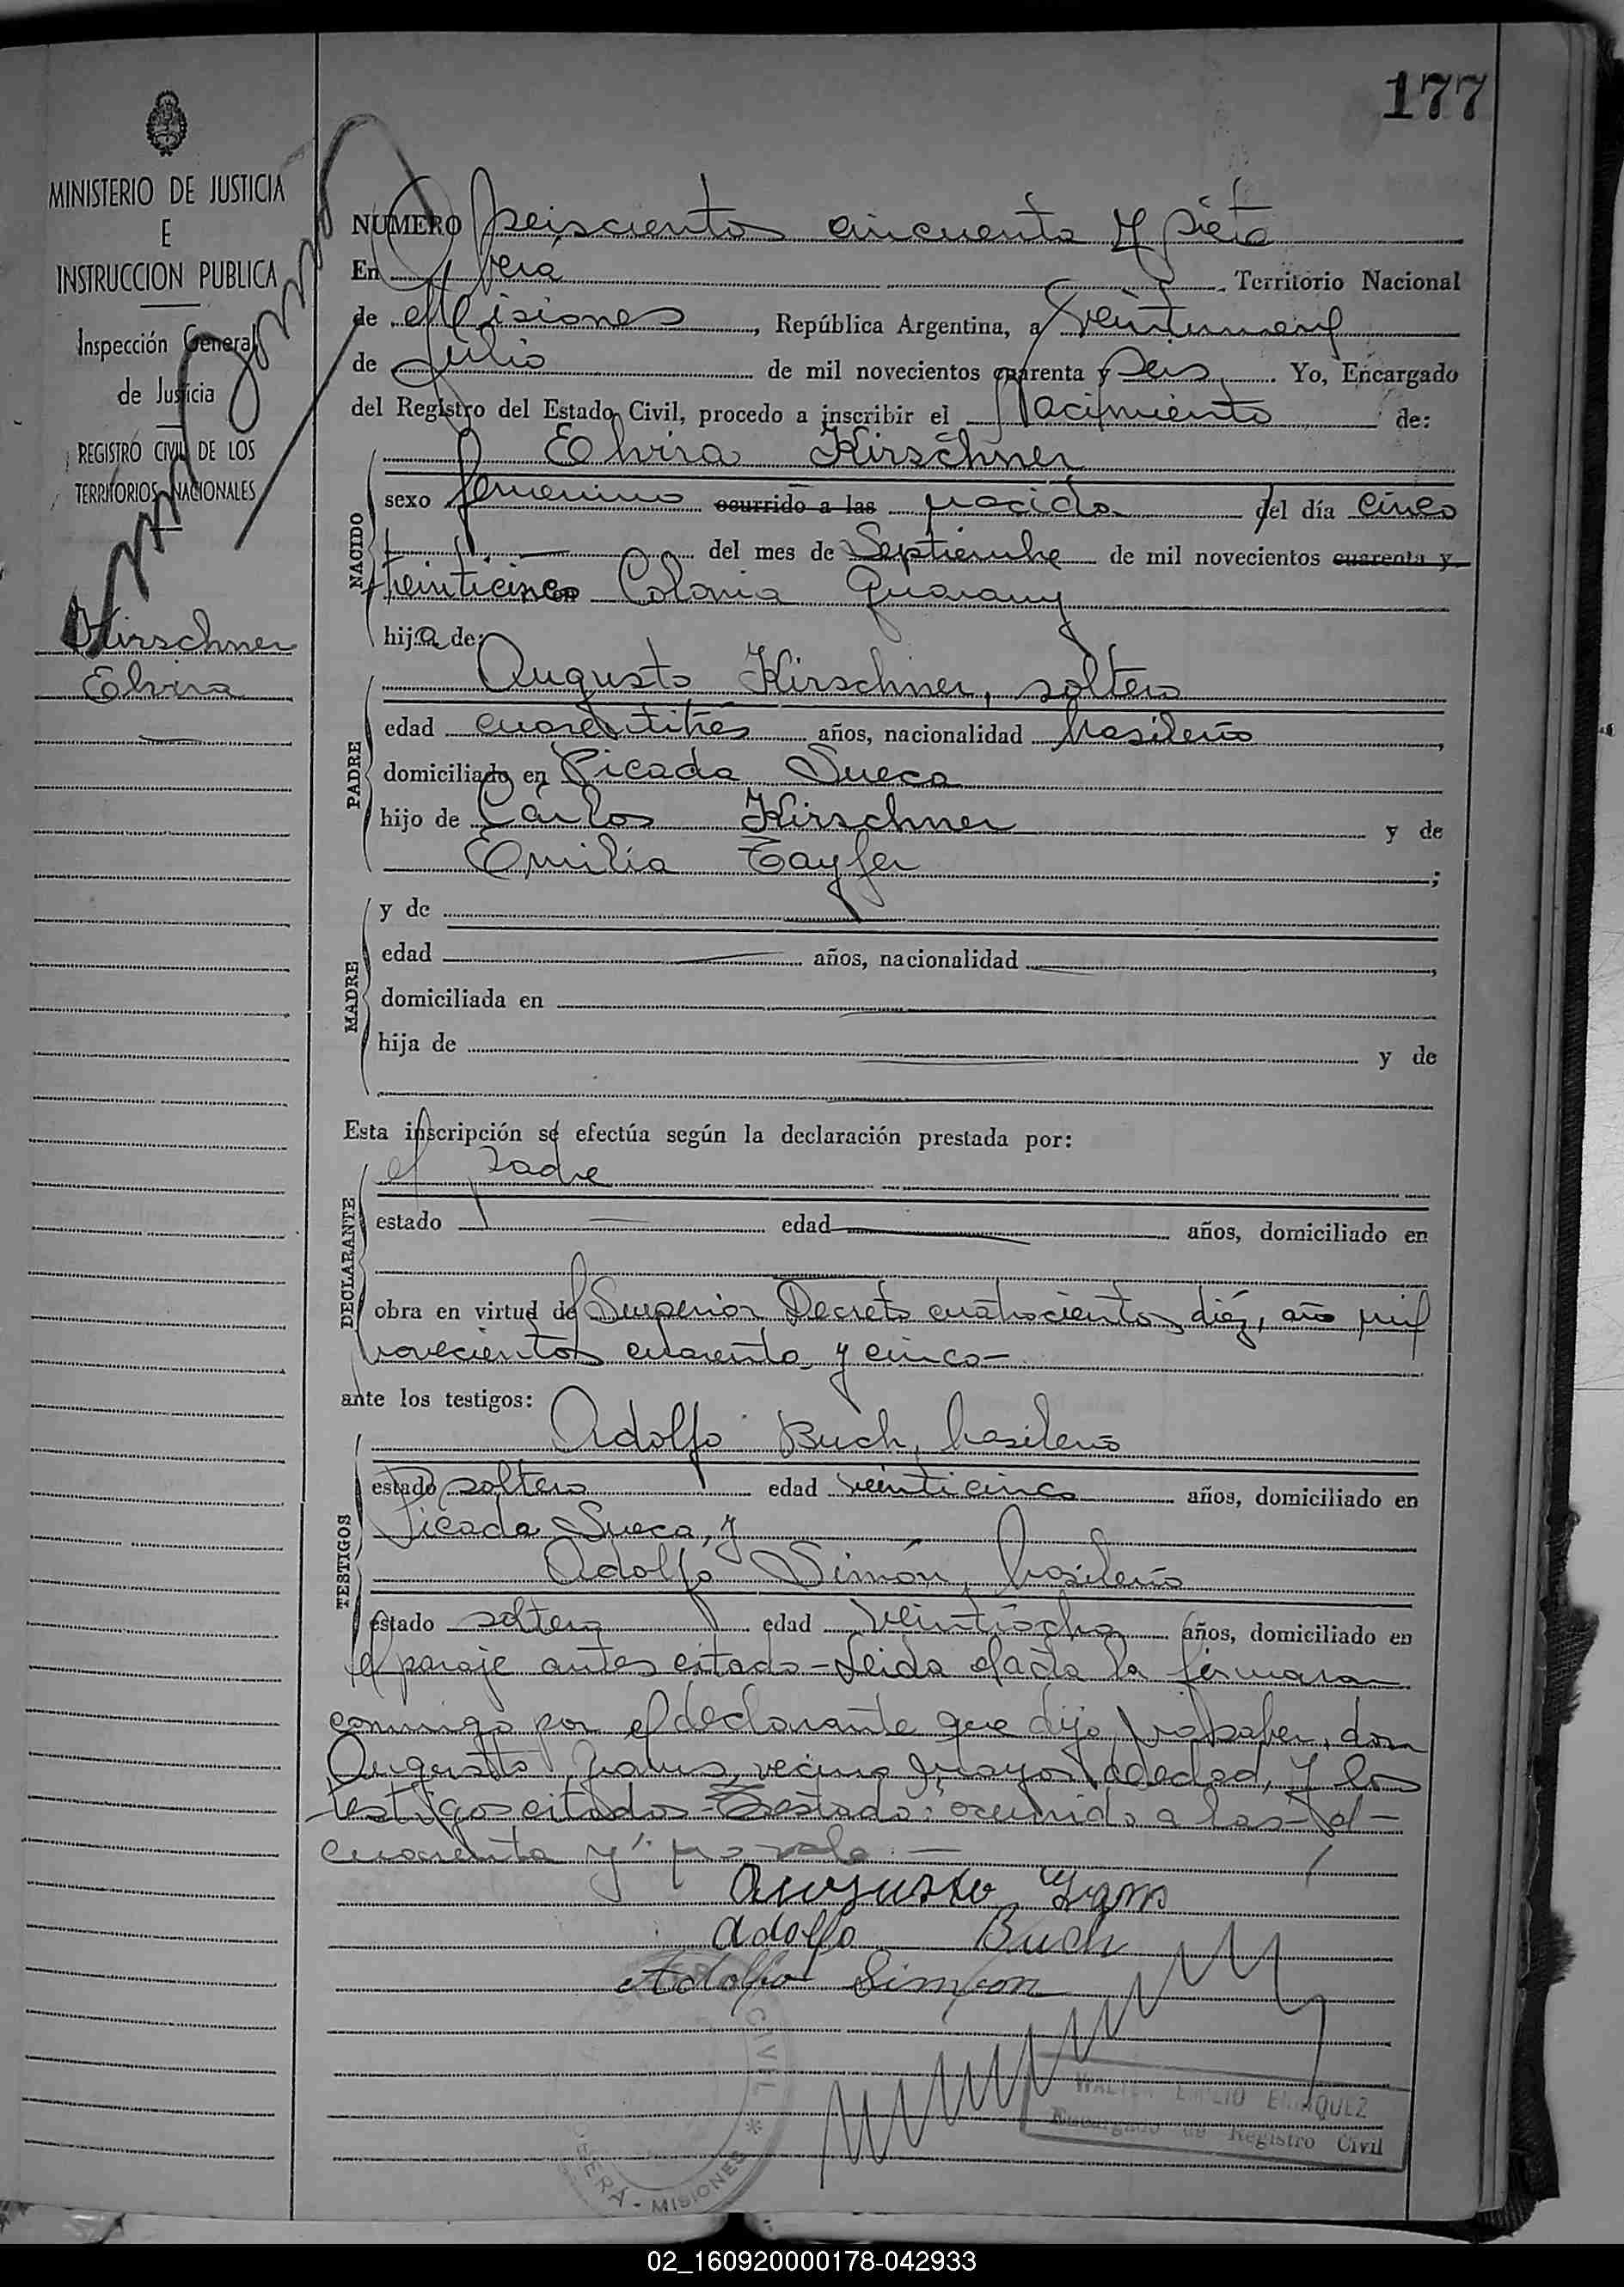 177
MINISTERIO DE JUSTICIA
E
INSTRUCCION PUBLICA
Inspección General
de Justicia
REGISTRO CIVIL DE LOS
TERRITORIOS NACIONALES
Kirschner
Elvira
NUMERO seiscientos cincuenta y siete
En Oberá Territorio Nacional
de Misiones, República Argentina, a veintinueve
de Julio de mil novecientos cuarenta y seis. Yo, Encargado
del Registro del Estado Civil, procedo a inscribir el Nacimiento de:
NACIDO
Elvira Kirschner
sexo femenino ocurrido a las nacida del día cinco
del mes de Septiembre de mil novecientos cuarenta y
veinticinco Colonia Guarany
hija de:
PADRE
Augusto Kirschner, soltero
edad cuarentitrés años, nacionalidad brasileño,
domiciliado en Picada Sueca
hijo de Carlos Kirschner y de
Emilia Tayfer;
MADRE
y de
edad años, nacionalidad,
domiciliada en
hija de y de
Esta inscripción se efectúa según la declaración prestada por:
DECLARANTE
el padre
estado edad años, domiciliado en
obra en virtud del Superior Decreto cuatrocientos diéz, año mil
novecientos cuarenta y cinco-
ante los testigos:
TESTIGOS
Adolfo Buch, brasileño
estado soltero edad veinticinco años, domiciliado en
Picada Sueca, y
Adolfo Simón, brasileño
estado soltero edad veintiocho años, domiciliado en
el paraje antes citado-Leida el acta la firmaron
conmigo por el declarante que dijo no saber, don
Augusto vecino mayor de edad, y los
testigos citados-Testado: ocurrido a las-d-
cuarenta y: no vale.-
Augusto
Adolfo Buch
Adolfo Simon
CIVIL * OBERÁ - MISIONES
WALTER EMILIO ENRIQUEZ
Encargado de Registro Civil
02_160920000178-042933